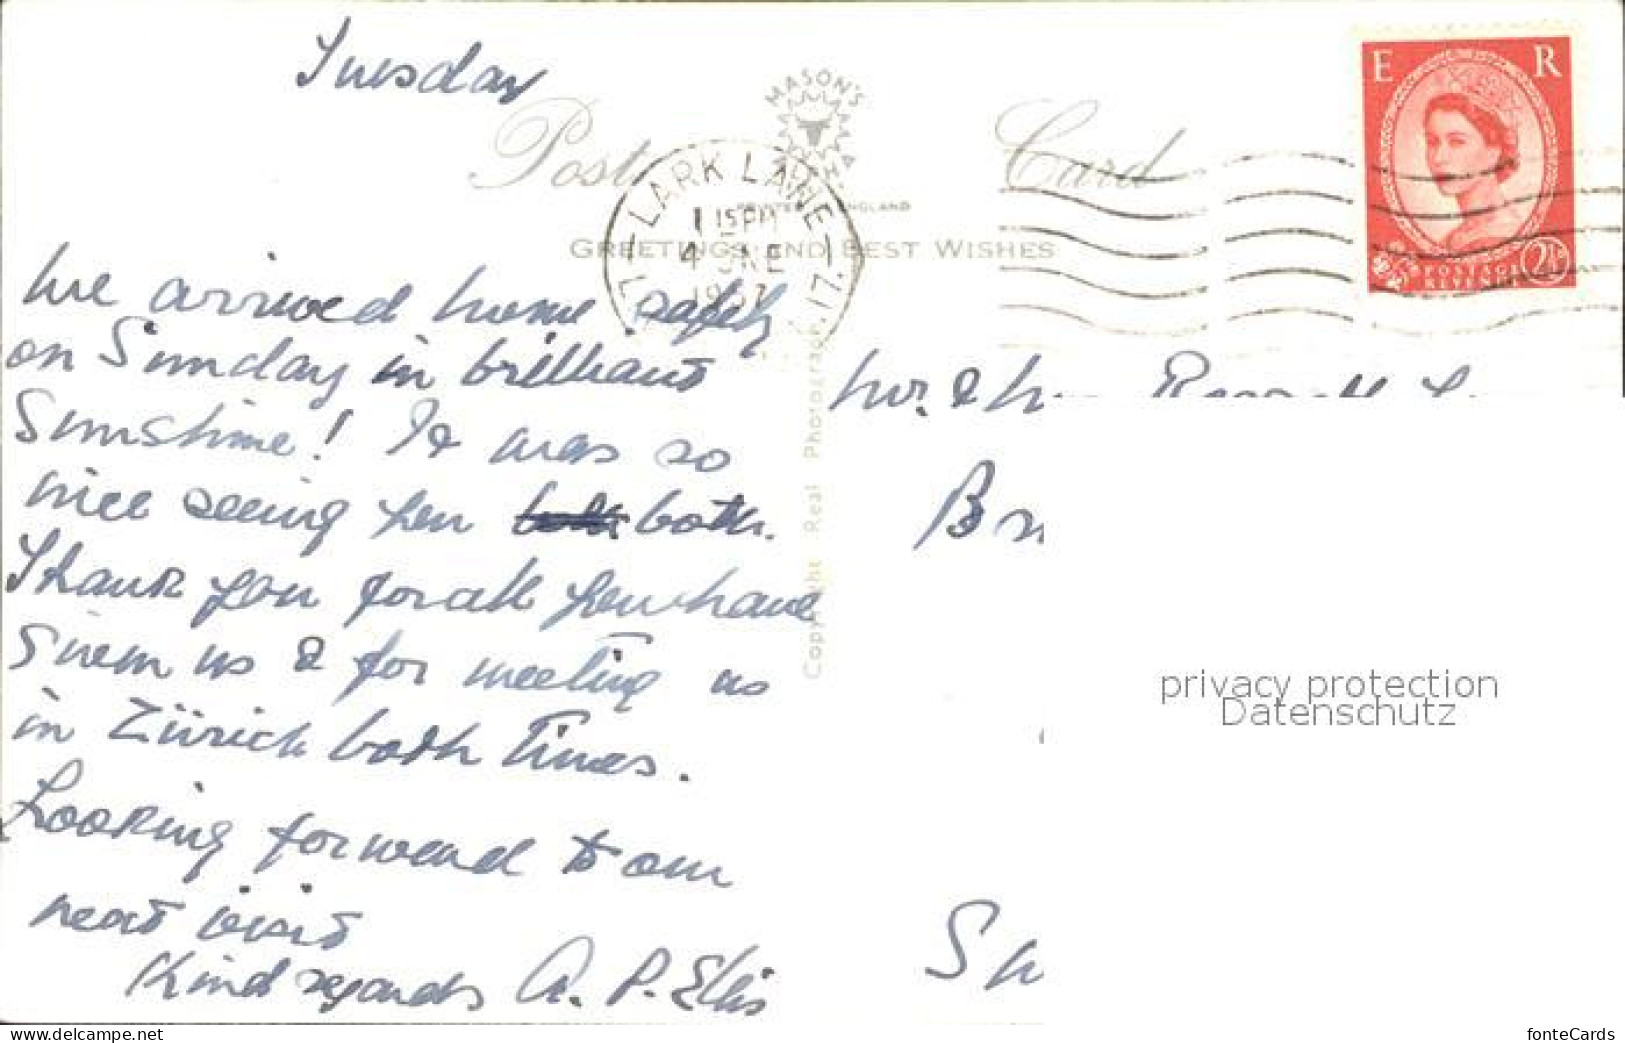 Tuesday
MASON'S
ALPHA
Post Card
PRINTED IN ENGLAND
GREETINGS AND BEST WISHES
LARK LANE
1 15 PM
4 JNE
1957
L
17.
E R
POSTAGE
REVENUE
2½D
We arrived home safely
on Sunday in brilliant
Sunshine! It was so
nice seeing you both.
Thank you for all you have
given us & for meeting us
in Zürich both times.
Looking forward to our
next visit
Kind regards A. P. Ellis
Copyright Real Photograph
Mr. &
Br
Su
privacy protection
Datenschutz
www.delcampe.net
fonteCards